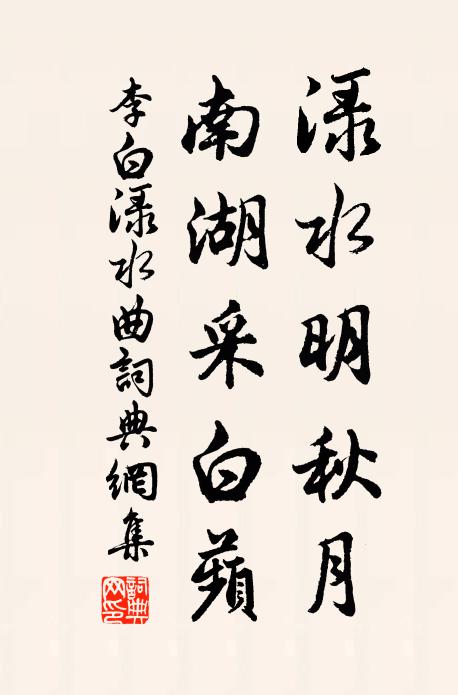 淥水明秋月
南湖采白蘋
李白淥水曲詞典網集
詞典網印